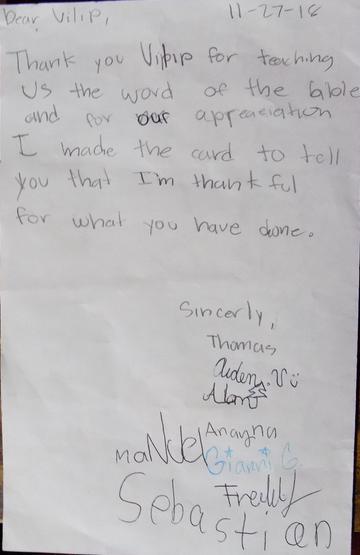 Dear Vilip, 11-27-18
Thank you Vilpip for teaching
Us the word of the bible
and for our appreaciation
I made the card to tell
you that I'm thankful
for what you have done.
Sincerly,
Thomas
Aiden.V
Alan
Manuel Anayna
Gianni G.
Freddy
Sebastian